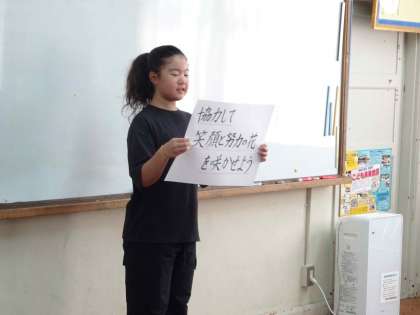 協力して
笑顔と努力の花
を咲かせよう